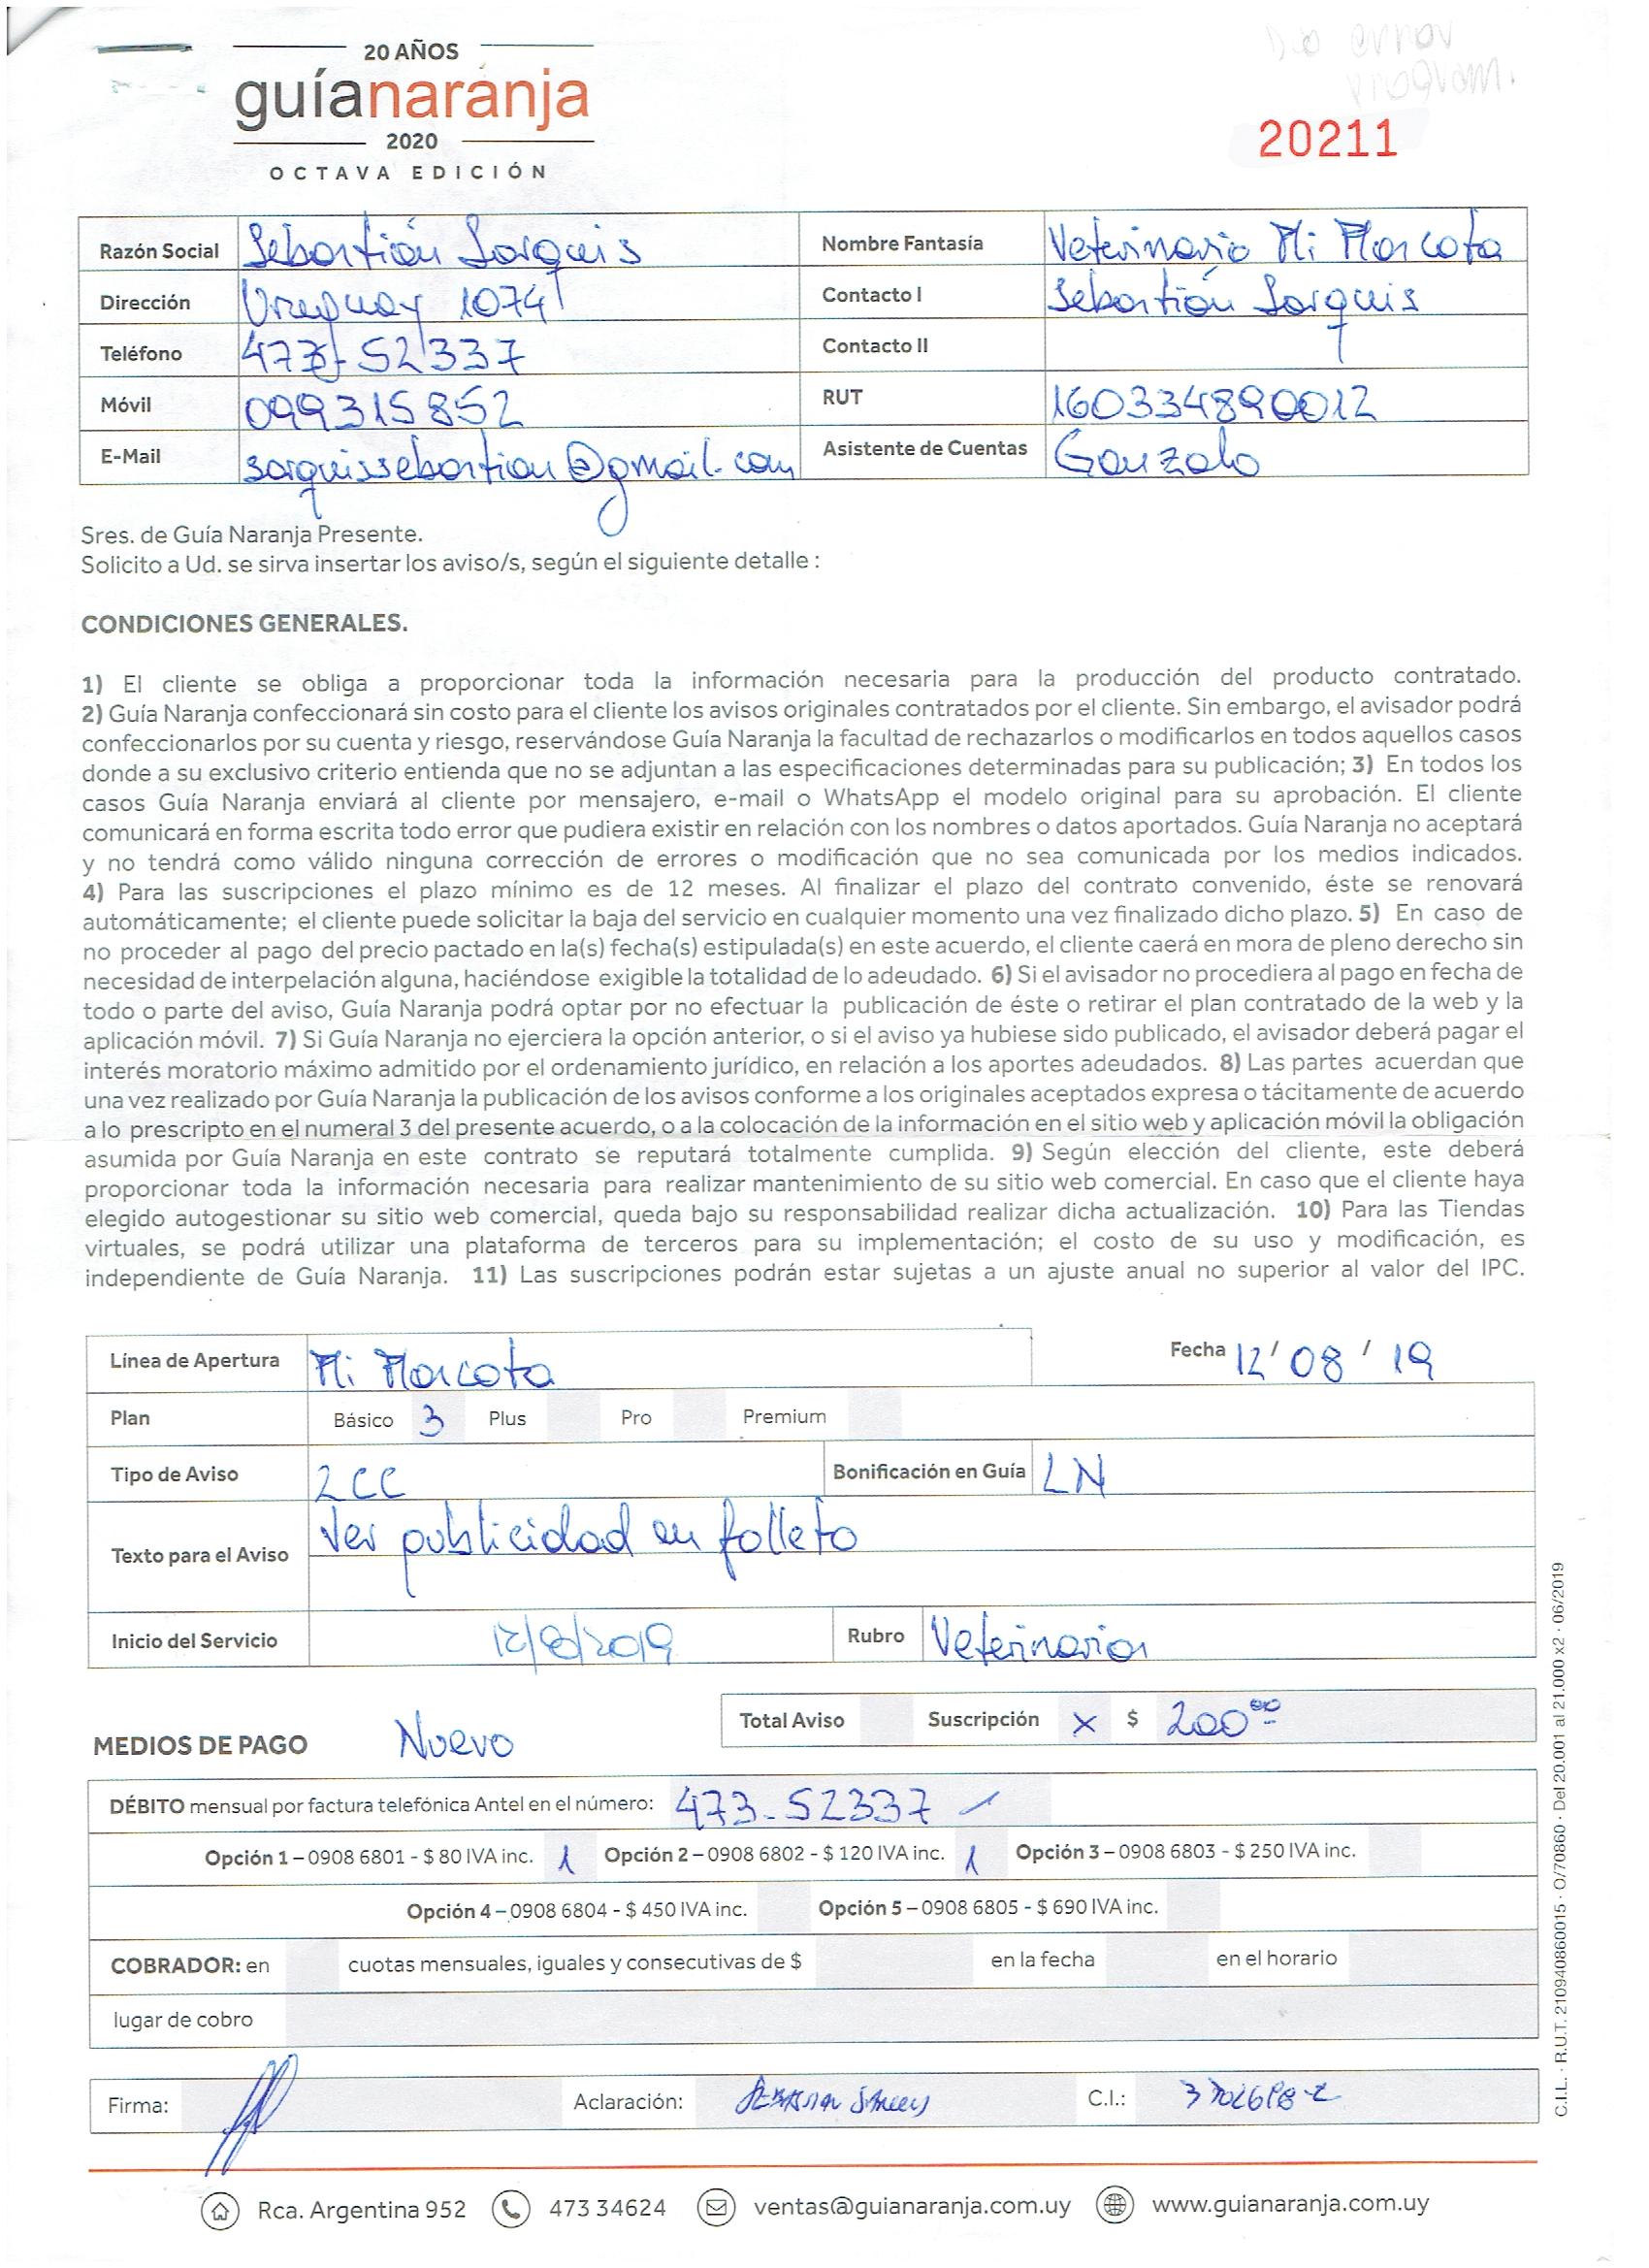 20 AÑOS
guíanaranja
2020
OCTAVA EDICIÓN
20211
Razón Social Sebastián Sarquis Nombre Fantasía Veterinaria Mi Mascota
Dirección Uruguay 1074 Contacto I Sebastián Sarquis
Teléfono 473-52337 Contacto II
Móvil 099315852 RUT 160334890012
E-Mail sarquissebastian@gmail.com Asistente de Cuentas Gonzalo
Sres. de Guía Naranja Presente.
Solicito a Ud. se sirva insertar los aviso/s, según el siguiente detalle :
CONDICIONES GENERALES.
1) El cliente se obliga a proporcionar toda la información necesaria para la producción del producto contratado.
2) Guía Naranja confeccionará sin costo para el cliente los avisos originales contratados por el cliente. Sin embargo, el avisador podrá
confeccionarlos por su cuenta y riesgo, reservándose Guía Naranja la facultad de rechazarlos o modificarlos en todos aquellos casos
donde a su exclusivo criterio entienda que no se adjuntan a las especificaciones determinadas para su publicación; 3) En todos los
casos Guía Naranja enviará al cliente por mensajero, e-mail o WhatsApp el modelo original para su aprobación. El cliente
comunicará en forma escrita todo error que pudiera existir en relación con los nombres o datos aportados. Guía Naranja no aceptará
y no tendrá como válido ninguna corrección de errores o modificación que no sea comunicada por los medios indicados.
4) Para las suscripciones el plazo mínimo es de 12 meses. Al finalizar el plazo del contrato convenido, éste se renovará
automáticamente; el cliente puede solicitar la baja del servicio en cualquier momento una vez finalizado dicho plazo. 5) En caso de
no proceder al pago del precio pactado en la(s) fecha(s) estipulada(s) en este acuerdo, el cliente caerá en mora de pleno derecho sin
necesidad de interpelación alguna, haciéndose exigible la totalidad de lo adeudado. 6) Si el avisador no procediera al pago en fecha de
todo o parte del aviso, Guía Naranja podrá optar por no efectuar la publicación de éste o retirar el plan contratado de la web y la
aplicación móvil. 7) Si Guía Naranja no ejerciera la opción anterior, o si el aviso ya hubiese sido publicado, el avisador deberá pagar el
interés moratorio máximo admitido por el ordenamiento jurídico, en relación a los aportes adeudados. 8) Las partes acuerdan que
una vez realizado por Guía Naranja la publicación de los avisos conforme a los originales aceptados expresa o tácitamente de acuerdo
a lo prescripto en el numeral 3 del presente acuerdo, o a la colocación de la información en el sitio web y aplicación móvil la obligación
asumida por Guía Naranja en este contrato se reputará totalmente cumplida. 9) Según elección del cliente, este deberá
proporcionar toda la información necesaria para realizar mantenimiento de su sitio web comercial. En caso que el cliente haya
elegido autogestionar su sitio web comercial, queda bajo su responsabilidad realizar dicha actualización. 10) Para las Tiendas
virtuales, se podrá utilizar una plataforma de terceros para su implementación; el costo de su uso y modificación, es
independiente de Guía Naranja. 11) Las suscripciones podrán estar sujetas a un ajuste anual no superior al valor del IPC.
Línea de Apertura Mi Mascota Fecha 12/ 08 / 19
Plan Básico 3 Plus Pro Premium
Tipo de Aviso 2CC Bonificación en Guía LN
Texto para el Aviso Ver publicidad en folleto
Inicio del Servicio 12/8/2019 Rubro Veterinaria
Total Aviso Suscripción x $ 200⁰⁰
MEDIOS DE PAGO Nuevo
DÉBITO mensual por factura telefónica Antel en el número: 473-52337
Opción 1 – 0908 6801 - $ 80 IVA inc. 1 Opción 2 – 0908 6802 - $ 120 IVA inc. 1 Opción 3 – 0908 6803 - $ 250 IVA inc.
Opción 4 – 0908 6804 - $ 450 IVA inc. Opción 5 – 0908 6805 - $ 690 IVA inc.
COBRADOR: en cuotas mensuales, iguales y consecutivas de $ en la fecha en el horario
lugar de cobro
Firma: Aclaración: C.I.:
Rca. Argentina 952 473 34624 ventas@guianaranja.com.uy www.guianaranja.com.uy
C.I.L. · R.U.T. 210940860015 · O/70860 · Del 20.001 al 21.000 x2 · 06/2019